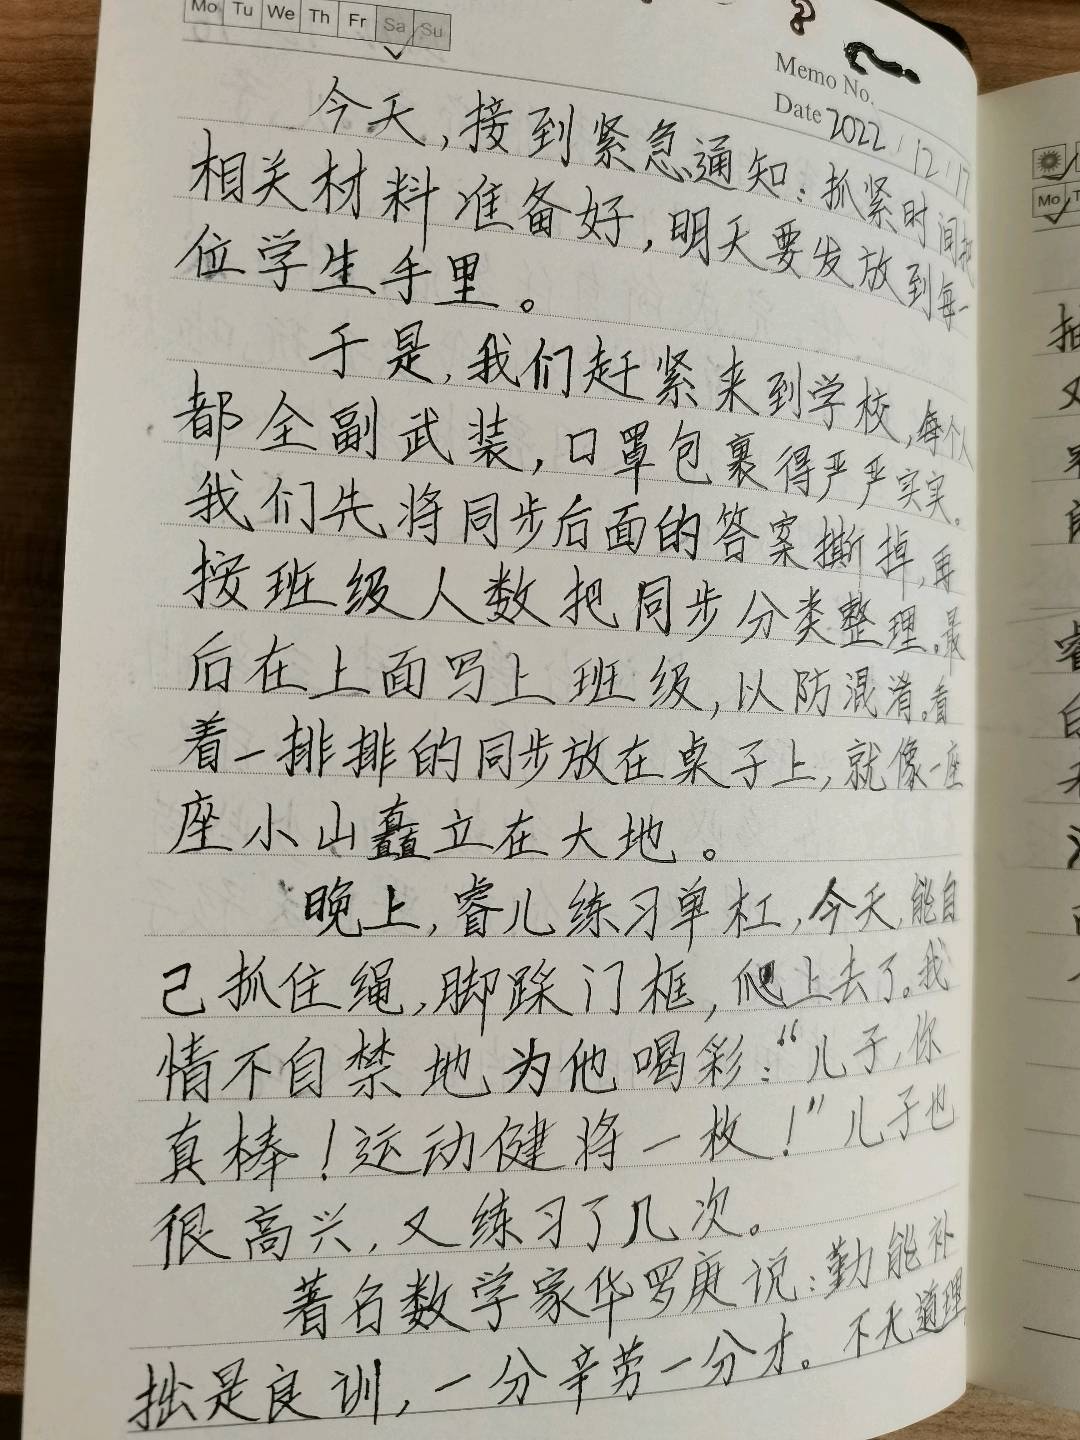 Mo Tu We Th Fr Sa Su
Memo No.
Date 2022/12/17
今天,接到紧急通知:抓紧时间把
相关材料准备好,明天要发放到每一
位学生手里。
于是,我们赶紧来到学校,每个人
都全副武装,口罩包裹得严严实实。
我们先将同步后面的答案撕掉,再
按班级人数把同步分类整理。最
后在上面写上班级,以防混淆。看
着一排排的同步放在桌子上,就像一座
座小山矗立在大地。
晚上,睿儿练习单杠,今天,能自
己抓住绳,脚踩门框,爬上去了。我
情不自禁地为他喝彩:“儿子,你
真棒!运动健将一枚!”儿子也
很高兴,又练习了几次。
著名数学家华罗庚说:勤能补
拙是良训,一分辛劳一分才。不无道理
Mo